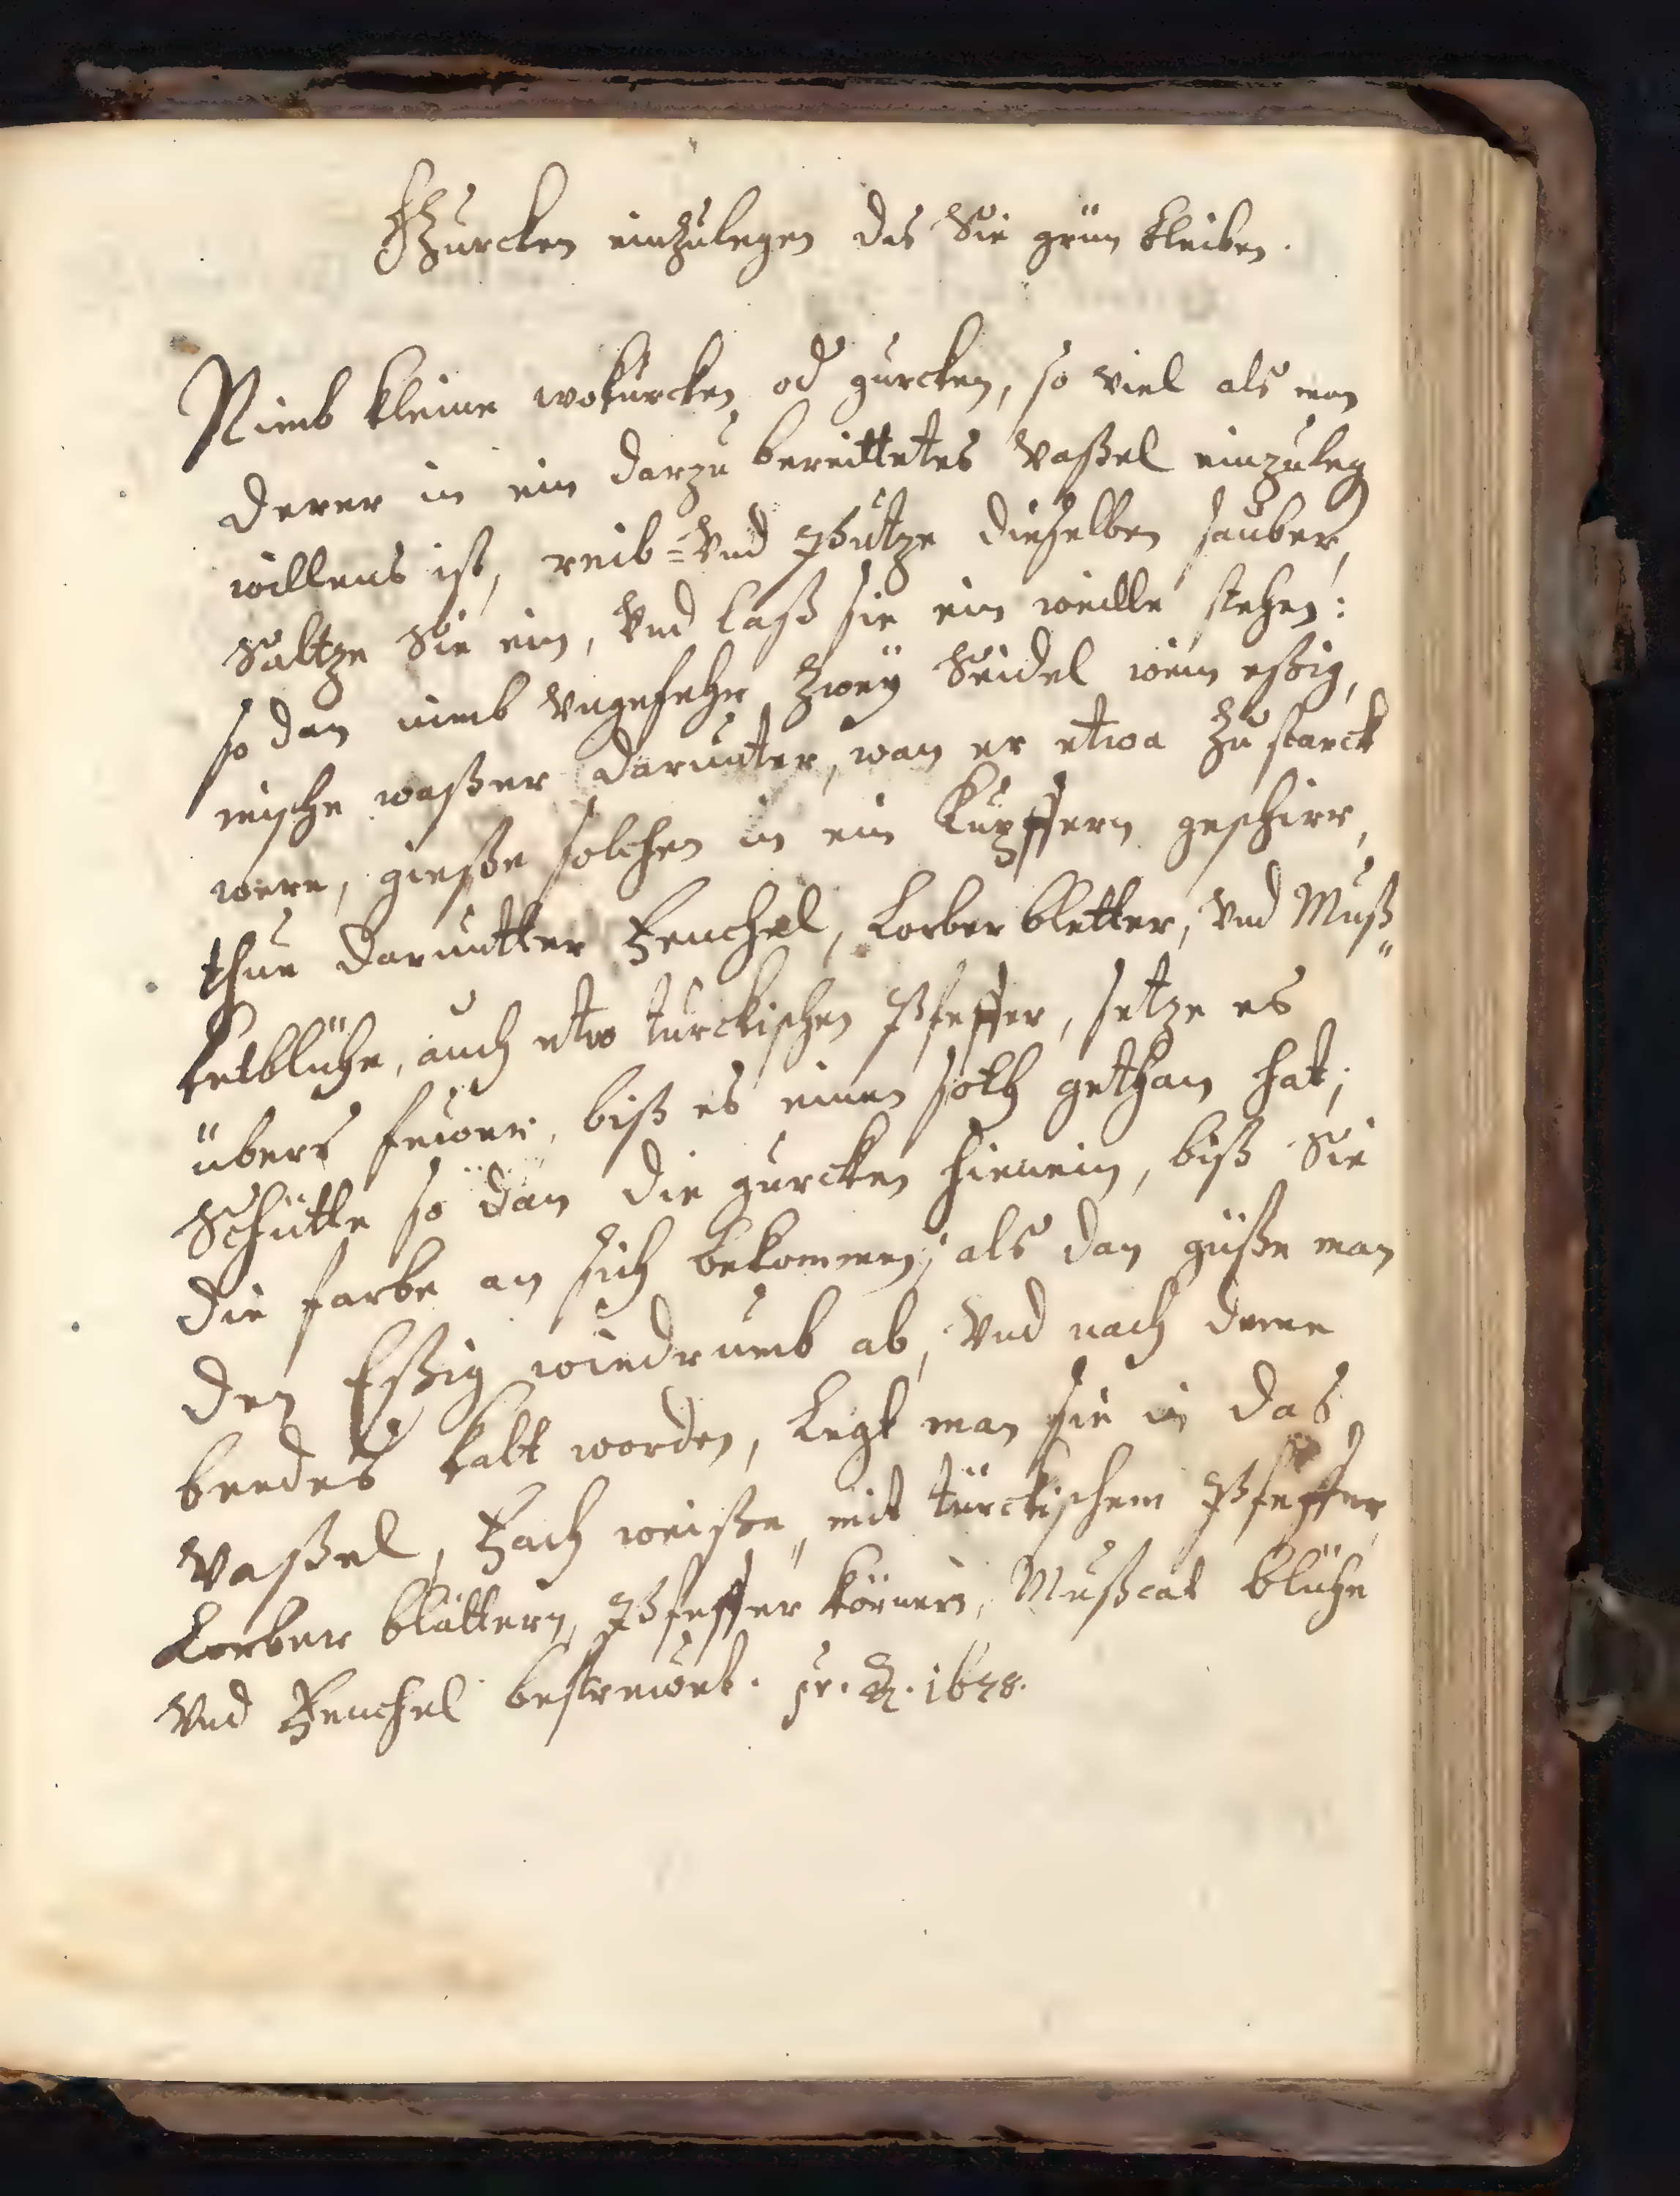 Gurcken einzulegen das Sie grün bleiben.
Nimb kleine wokurcken od gurcken, so viel als man
derer in ein darzu bereittetes Vaßel einzuleg
willens ist, reib= Vnd Putze dieselben sauber,
Saltze Sie ein, Vnd laß sie ein weille stehen:
so dan nimb Vngefehr Zweÿ Seidel wein eßig,
mische waßer darunter, wan er etwa Zu starck
were, gieße solchen in ein Kupffern geschirr,
thue daruntter Fenchel, Lorber bletter, Vnd Muß„
ketblühe, auch etw türckischen Pfeffer, setze es
übers feüer, biß es einen soth gethan hat;
Schütte so dan die gurcken hienein, biß Sie
die farbe an sich bekommen; als dan güße man
den Eßig wiedrumb ab, Vnd nach deme
beedes kalt worden, Legt man sie in das
Vaßel, Fach weiße, mit türckischem Pfeffer,
Lorber blättern, Pfeffer körnern, Mußcat blühe
Vnd Fenchel bestrewet. pr. 1678.